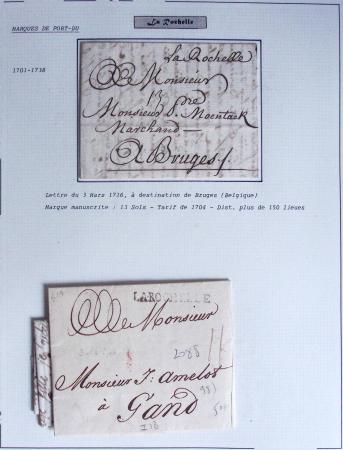 La Rochelle
MARQUES DE PORT-DU
1701-1738
La Rochelle
Monsieur
13
Monsieur Pre Moentack
Marchand
A Bruges
Lettre du 3 Mars 1736, à destination de Bruges (Belgique)
Marque manuscrite : 13 Sols - Tarif de 1704 - Dist. plus de 150 lieues
LAROCHELLE
Monsieur
2088
Monsieur J: Amelot
à
Gand